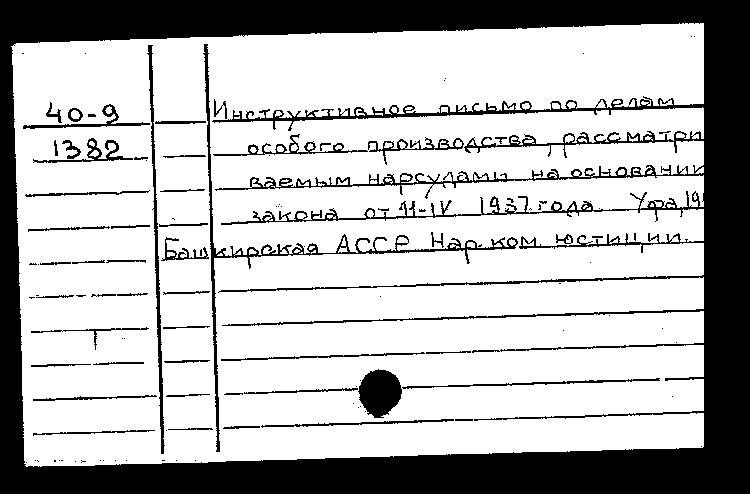 40-9 Инструктивное письмо по делам
1382 особого производства, рассматри
ваемым нарсудами на основании
закона от 11-IV 1937 года Уфа,
Башкирская АССР Нар.ком. юстиции.